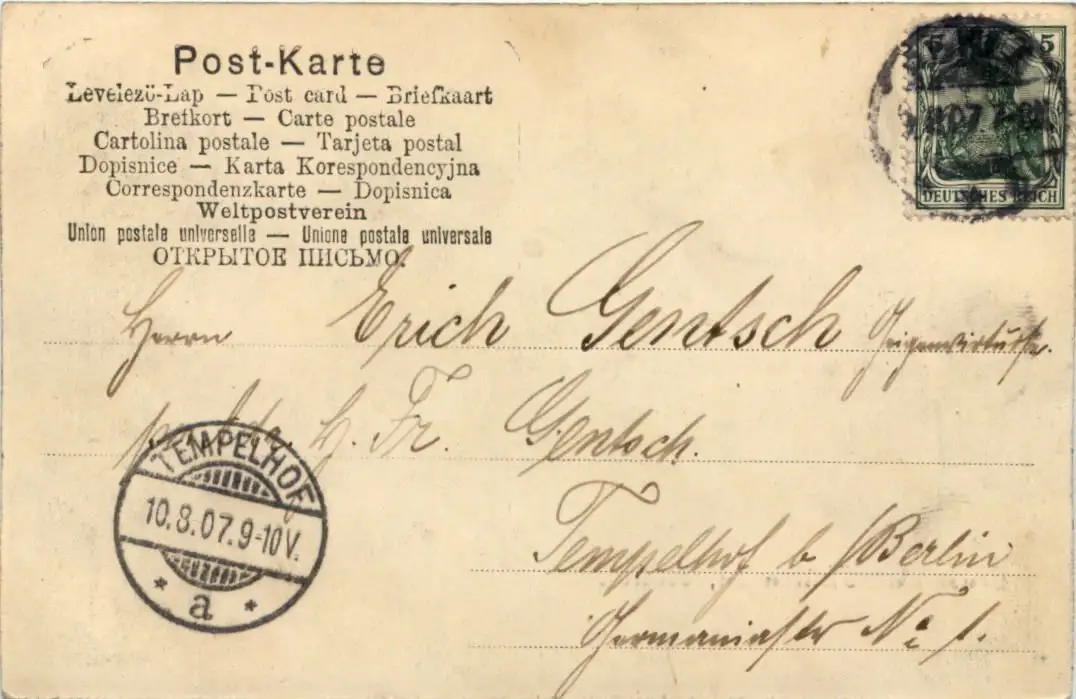 Post-Karte
Levelező-Lap — Post card — Briefkaart
Brefkort — Carte postale
Cartolina postale — Tarjeta postal
Dopisnice — Karta Korespondencyjna
Correspondenzkarte — Dopisnica
Weltpostverein
Union postale universelle — Unione postale universale
ОТКРЫТОЕ ПИСЬМО.
5 5
07
DEUTSCHES REICH
Herrn Erich Gentsch
H. Fr. Gentsch.
TEMPELHOF
10.8.07.9-10V.
* a *
Tempelhof b/Berlin
Germaniastr No 1.